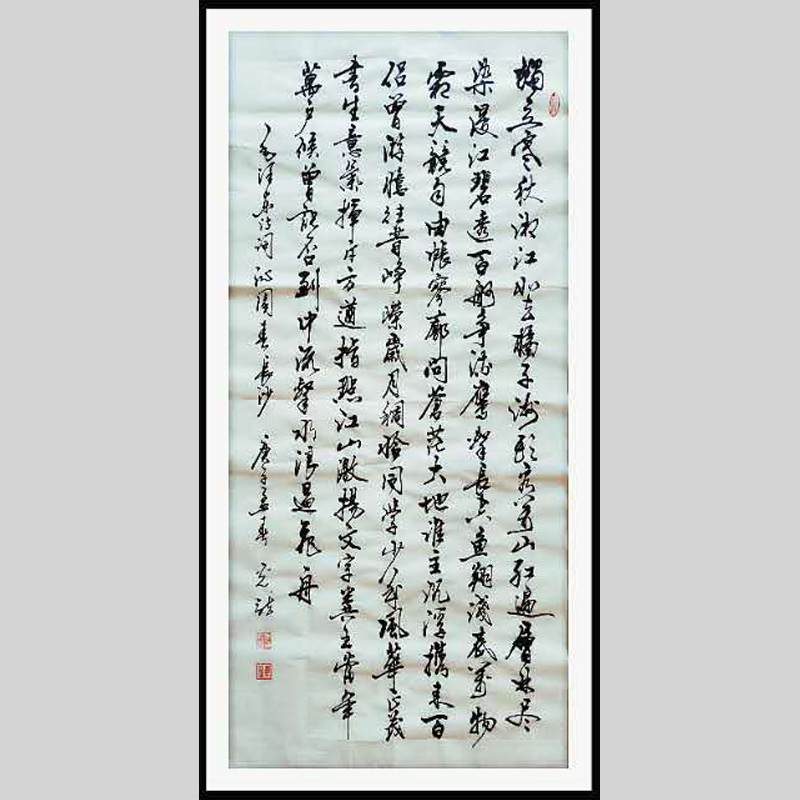 獨立寒秋湘江北去橘子洲頭看萬山紅遍層林尽
染漫江碧透百舸爭流鷹擊長空魚翔淺底萬物
霜天競自由悵寥廓問蒼茫大地誰主沉浮攜來百
侶曾游憶往昔崢嶸歲月稠恰同學少年風華正茂
書生意氣揮斥方遒指點江山激揚文字糞土當年
萬戶侯曾記否到中流擊水浪遏飛舟
毛澤東詩詞沁園春長沙 庚子孟春